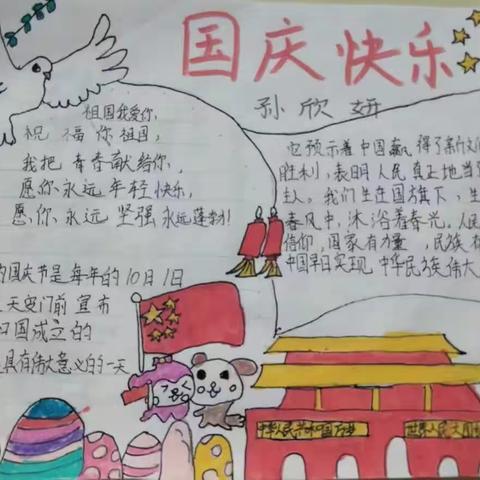 国庆快乐
孙欣妍
祖国我爱你,
祝福你祖国,
我把青春献给你,
愿你永远年轻快乐,
愿你永远坚强永远蓬勃!
国庆节是每年的10月1日
天安门前宣布
国成立的
具有伟大意义的一天
它预示着中国赢得了
胜利,表明人民真正地当
主人。我们生在国旗下,生
春风中,沐浴着春光,人民
信仰,国家有力量,民族
中国早日实现中华民族伟大
中华人民共和国万岁
世界人民大团